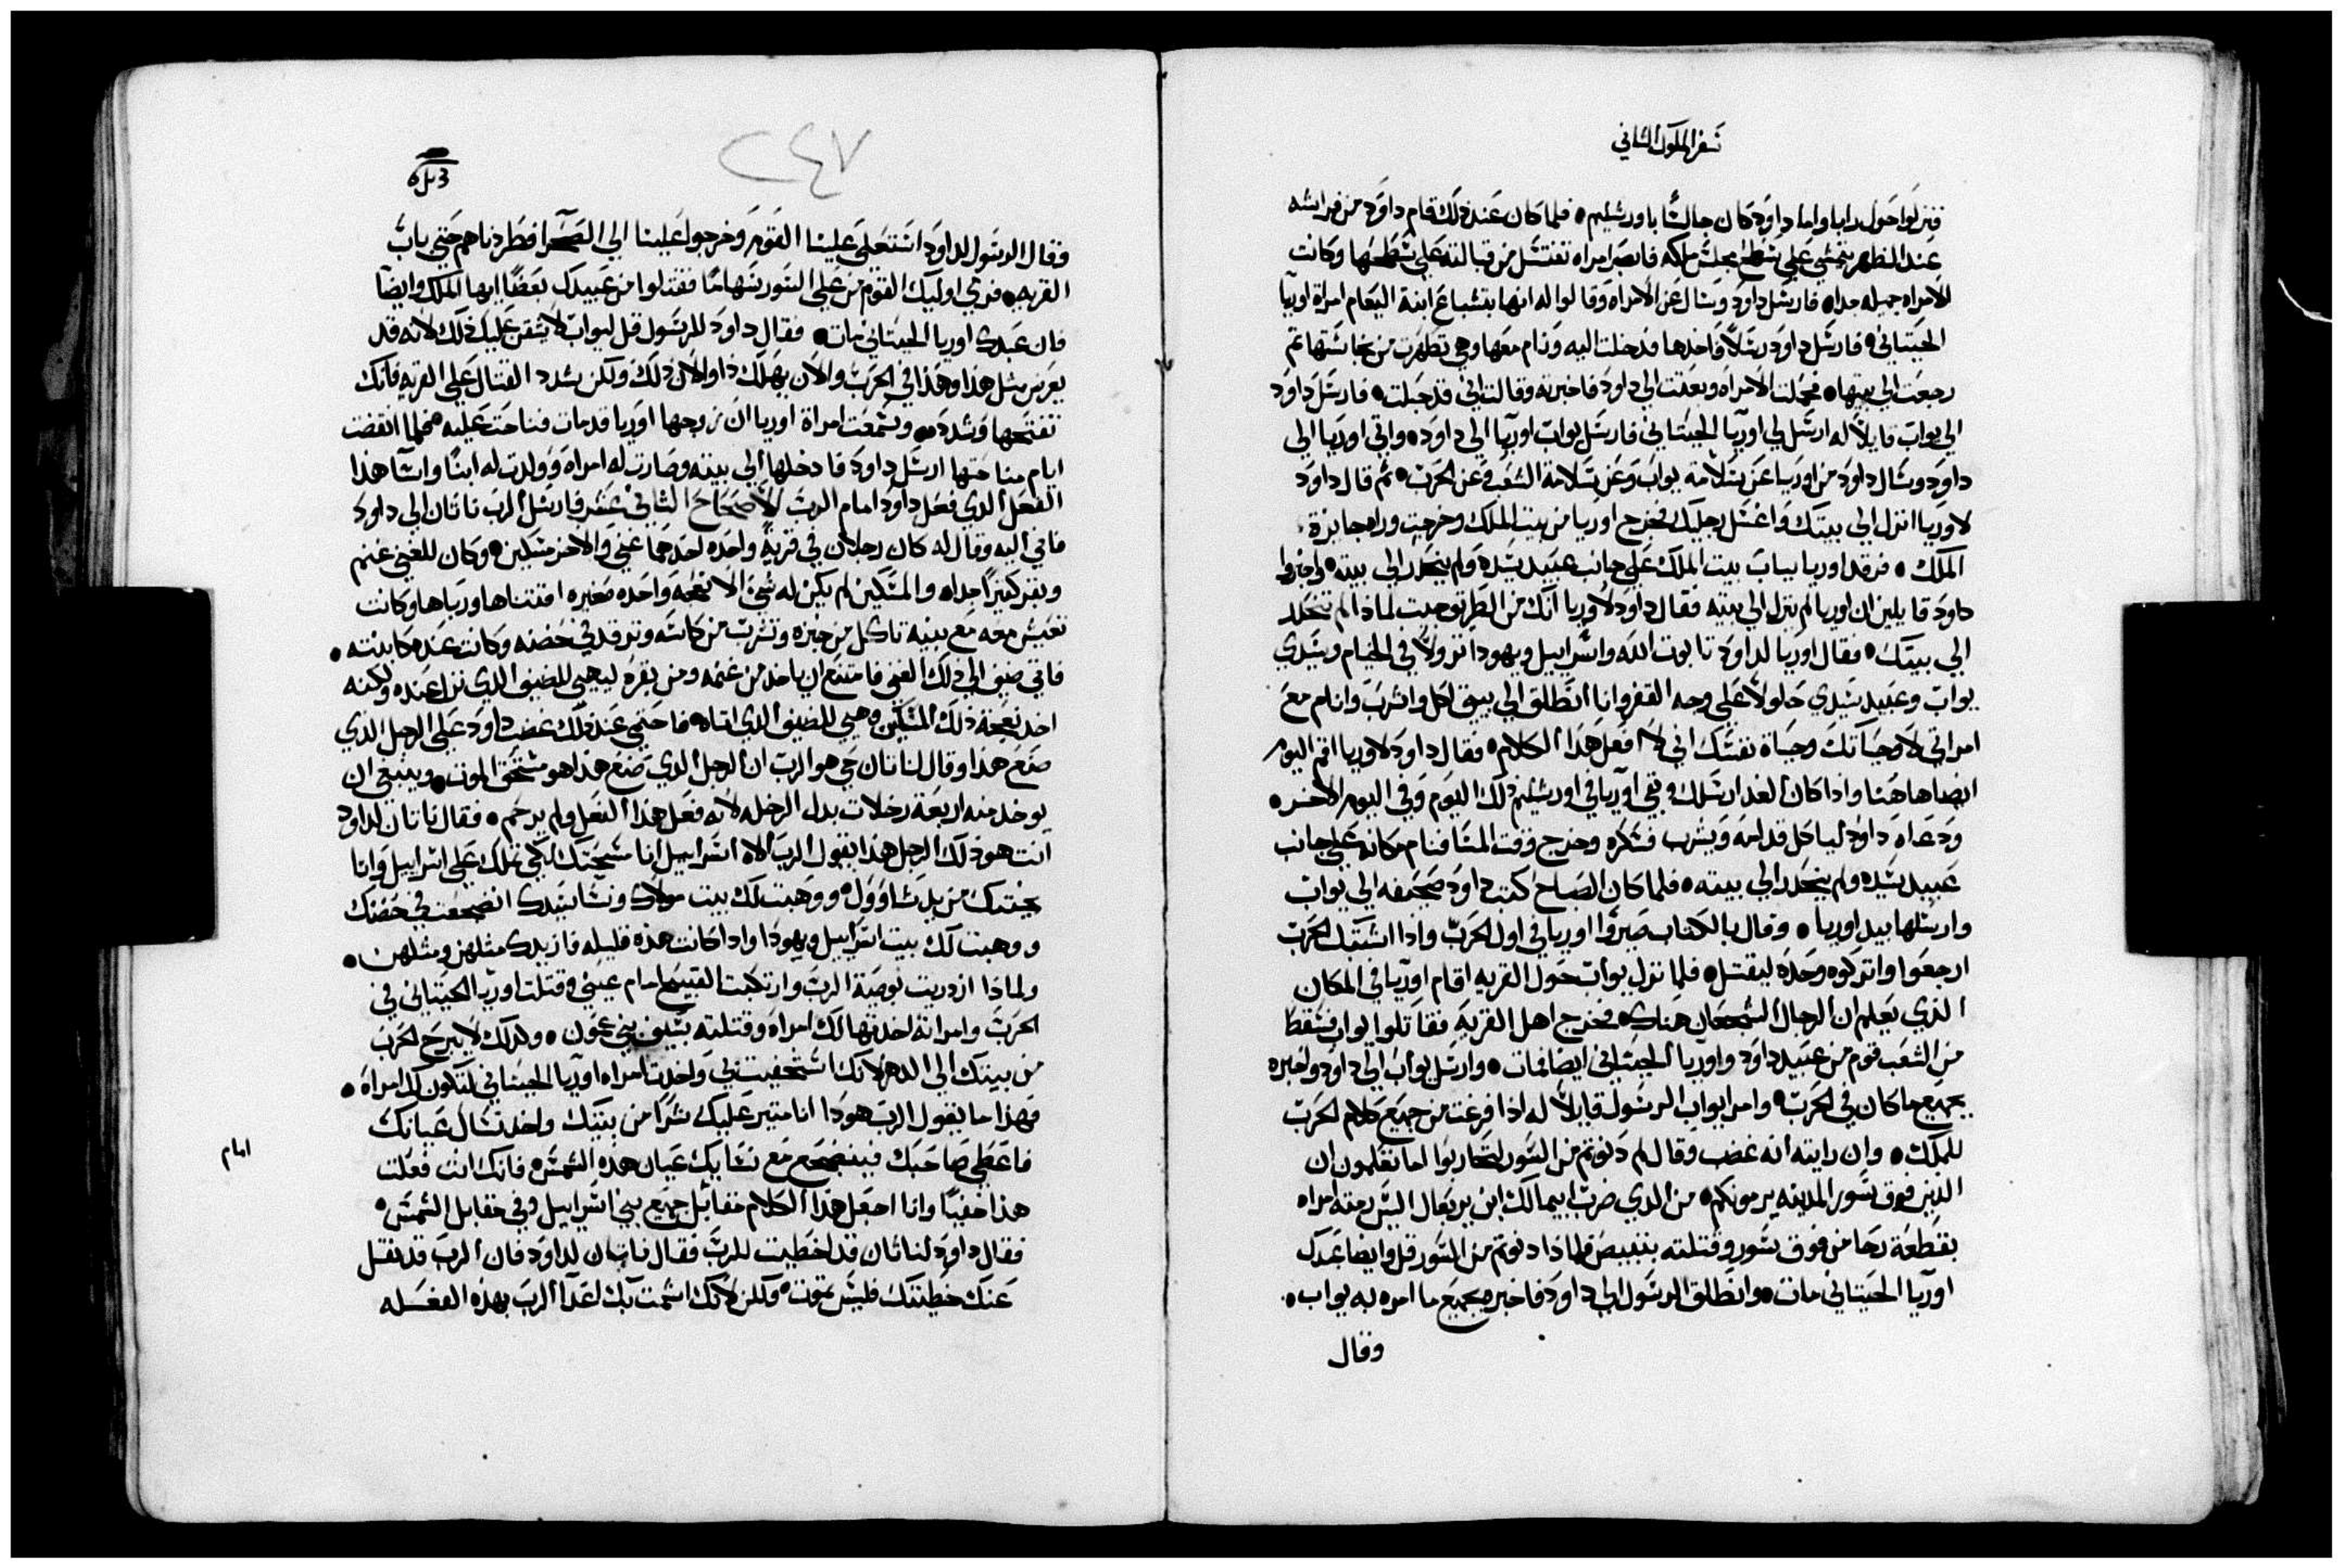 سفر الملوك الثاني
فنزلوا حول رابا واما داود كان جالسًا باورشليم ه فلما كان عند ذلك قام داود من فراشه
عند الظهر يتمشي علي سطح مجلس ملكه فابصر امراه تغتسل من قبالته علي سطحها وكانت
الامراه جميله جداه فارسل داود وسال عن الامراه وقالوا له انها بتشباع ابنة اليعام امراة اوريا
الحيتاني ه فارسل داود رسلًا واخدها فدخلت اليه ونام معها وهي تطهرت من نجاستها تم
رجعت الي بيتها ه فحملت الامراه وبعتت الي داود فاخبرته وقالت اني قد حبلت ه فارسل داود
الي يواب قايلًا له ارسل لي اوريا الحيتاني فارسل يواب اوريا الي داوده واتي اوريا الي
داود وسال داود من اوريا عن سلامة يواب وعن سلامة الشعب وعن الحرب ه تم قال داود
لاوريا انزل الي بيتك واغسل رجليك فخرج اوريا من بيت الملك وخرجت وراه جايزة
الملك ه فرقد اوريا بباب بيت الملك علي جانب عبيد سيده ولم ينحدر الي بيته ه واخبروا
داود قايلين ان اوريا لم ينزل الي بيته فقال داود لاوريا انك من الطريق جيت لماذا لم تنحدر
الي بيتك ه فقال اوريا لداود تابوت الله واسراييل ويهودا نزولًا في الخيام وسيدي
يواب وعبيد سيدي حلولًا علي وجه القفر وانا انطلق الي بيتي لاكل واشرب وانام مع
امراتي لا وحياتك وحياة نفسك اني لا افعل هذا الكلام ه فقال داود لاوريا اقم اليوم
ايضا هاهنا واذا كان الغد ارسلك وبقي اوريا في اورشليم ذلك اليوم وفي اليوم الاخر ه
ودعاه داود لياكل قدامه ويشرب فسكره وخرج وقت المسا فنام مكانه علي جانب
عبيد سيده ولم ينحدر الي بيته ه فلما كان الصباح كتب داود صحيفه الي يواب
وارسلها بيد اوريا ه وقال بالكتاب صيروا اوريا في اول الحرب واذا اشتبك الحرب
ارجعوا واتركوه وحده ليقتل ه فلما نزل يواب حول القريه اقام اوريا في المكان
الذي يعلم ان الرجال الشجعان هناك ه فخرج اهل القريه فقاتلوا يواب فسقط
من الشعب قوم من عبيد داود واوريا الحيتاني ايضا مات ه وارسل يواب الي داود واخبره
بجميع ما كان في الحرب ه وامر يواب الرسول قايلًا له اذا فرغت من جميع كلام الحرب
للملك ه وان رايته انه غضب وقال لم دنوتم من السور لتحاربوا اما تعلمون ان
الذين فوق سور المدينه يرمونكم ه من الذي ضرب ابيمالك ابن يربعال اليس رمته امراه
بقطعة رحا من فوق سور وقتلته بتيبيص فلماذا دنوتم من السور قل وايضا عبدك
اوريا الحيتاني مات ه وانطلق الرسول الي داود فاخبره بجميع ما امره به يواب ه
وقال
٢٤٧
فقال الرسول لداود استعلي علينا القوم وخرجوا علينا الي الصحرا فطردناهم حتي باب
القريه ه فرمي اوليك القوم من علي السور سهامًا فقتلوا من عبيدك بعضًا ايها الملك وايضًا
فان عبدك اوريا الحيتاني مات ه فقال داود للرسول قل ليواب لا يشقن عليك ذلك لانه قد
يعرض مثل هذا وهذا في الحرب والان يهلك ذا والان ذلك ولكن شدد القتال علي القريه فانك
تفتحها وشدده ه وسمعت امراة اوريا ان زوجها اوريا قد مات فناحت عليه ه فلما انقضت
ايام مناحتها ارسل داود فادخلها الي بيته وصارت له امراه وولدت له ابنًا واسآ هذا
الفعل الذي فعل داود امام الرب الاصحاح الثاني عشر فارسل الرب ناتان الي داود
فاتي اليه وقال له كان رجلان في قرية واحده احدهما غني والاخر مسكين ه وكان للغني غنم
وبقر كثيرًا جداه والمسكين لم يكن له شي الا نعجه واحده صغيره اقتناها ورباها وكانت
تعيش معه مع بنيه تاكل من خبزه وتشرب من كاسه وترقد في حضنه وكانت عنده كابنته ه
فاتي ضيف الي ذلك الغني فامتنع ان ياخذ من غنمه ومن بقره ليهيي للضيف الذي نزل عنده ولكنه
اخد نعجة ذلك المسكين وهيي للضيف الذي اتاه ه فاحتمي عند ذلك غضب داود علي الرجل الذي
صنع هذا وقال لناتان حي هو الرب ان الرجل الذي صنع هذا هو مستحق الموت ه وينبغي ان
يوخد منه اربعة رخلات بدل الرخله لانه فعل هذا الفعل ولم يرحم ه فقال ناتان لداود
انت هو ذلك الرجل هذا يقول الرب الاه اسراييل انا مسحتك لكي تملك علي اسراييل وانا
نجيتك من يد شاوول ه ووهبت لك بيت مولاك ونسا سيدك انضجعت في حضنك
ووهبت لك بيت اسراييل ويهودا واذا كانت هذه قليله فازيدك مثلهن ومثلهن ه
ولماذا ازدريت بوصية الرب وارتكبت القبيح امام عيني وقتلت اوريا الحيتاني في
الحرب وامراته اخدتها لك امراه وقتلته بسيف بني عمون ه ولذلك لا يبرح الحرب
من بيتك الي الدهر لانك استخفيت بي واخدت امراه اوريا الحيتاني لتكون لك امراه ه
فهذا ما يقول الرب هوذا انا متير عليك شرًا من بيتك واخد نساك عيانك
فاعطي صاحبك فينضجع مع نسايك عيان هذه الشمس ه فانك انت فعلت
هذا خفيًا وانا اجعل هذا الكلام مقابل جميع بني اسراييل وفي مقابل الشمس ه
فقال داود لناتان قد اخطيت للرب فقال ناتان لداود فان الرب قد نقل
عنك خطيتك فليس تموت ه ولكن لانك اشمت بك اعدآ الرب بهذه الفعله
امام